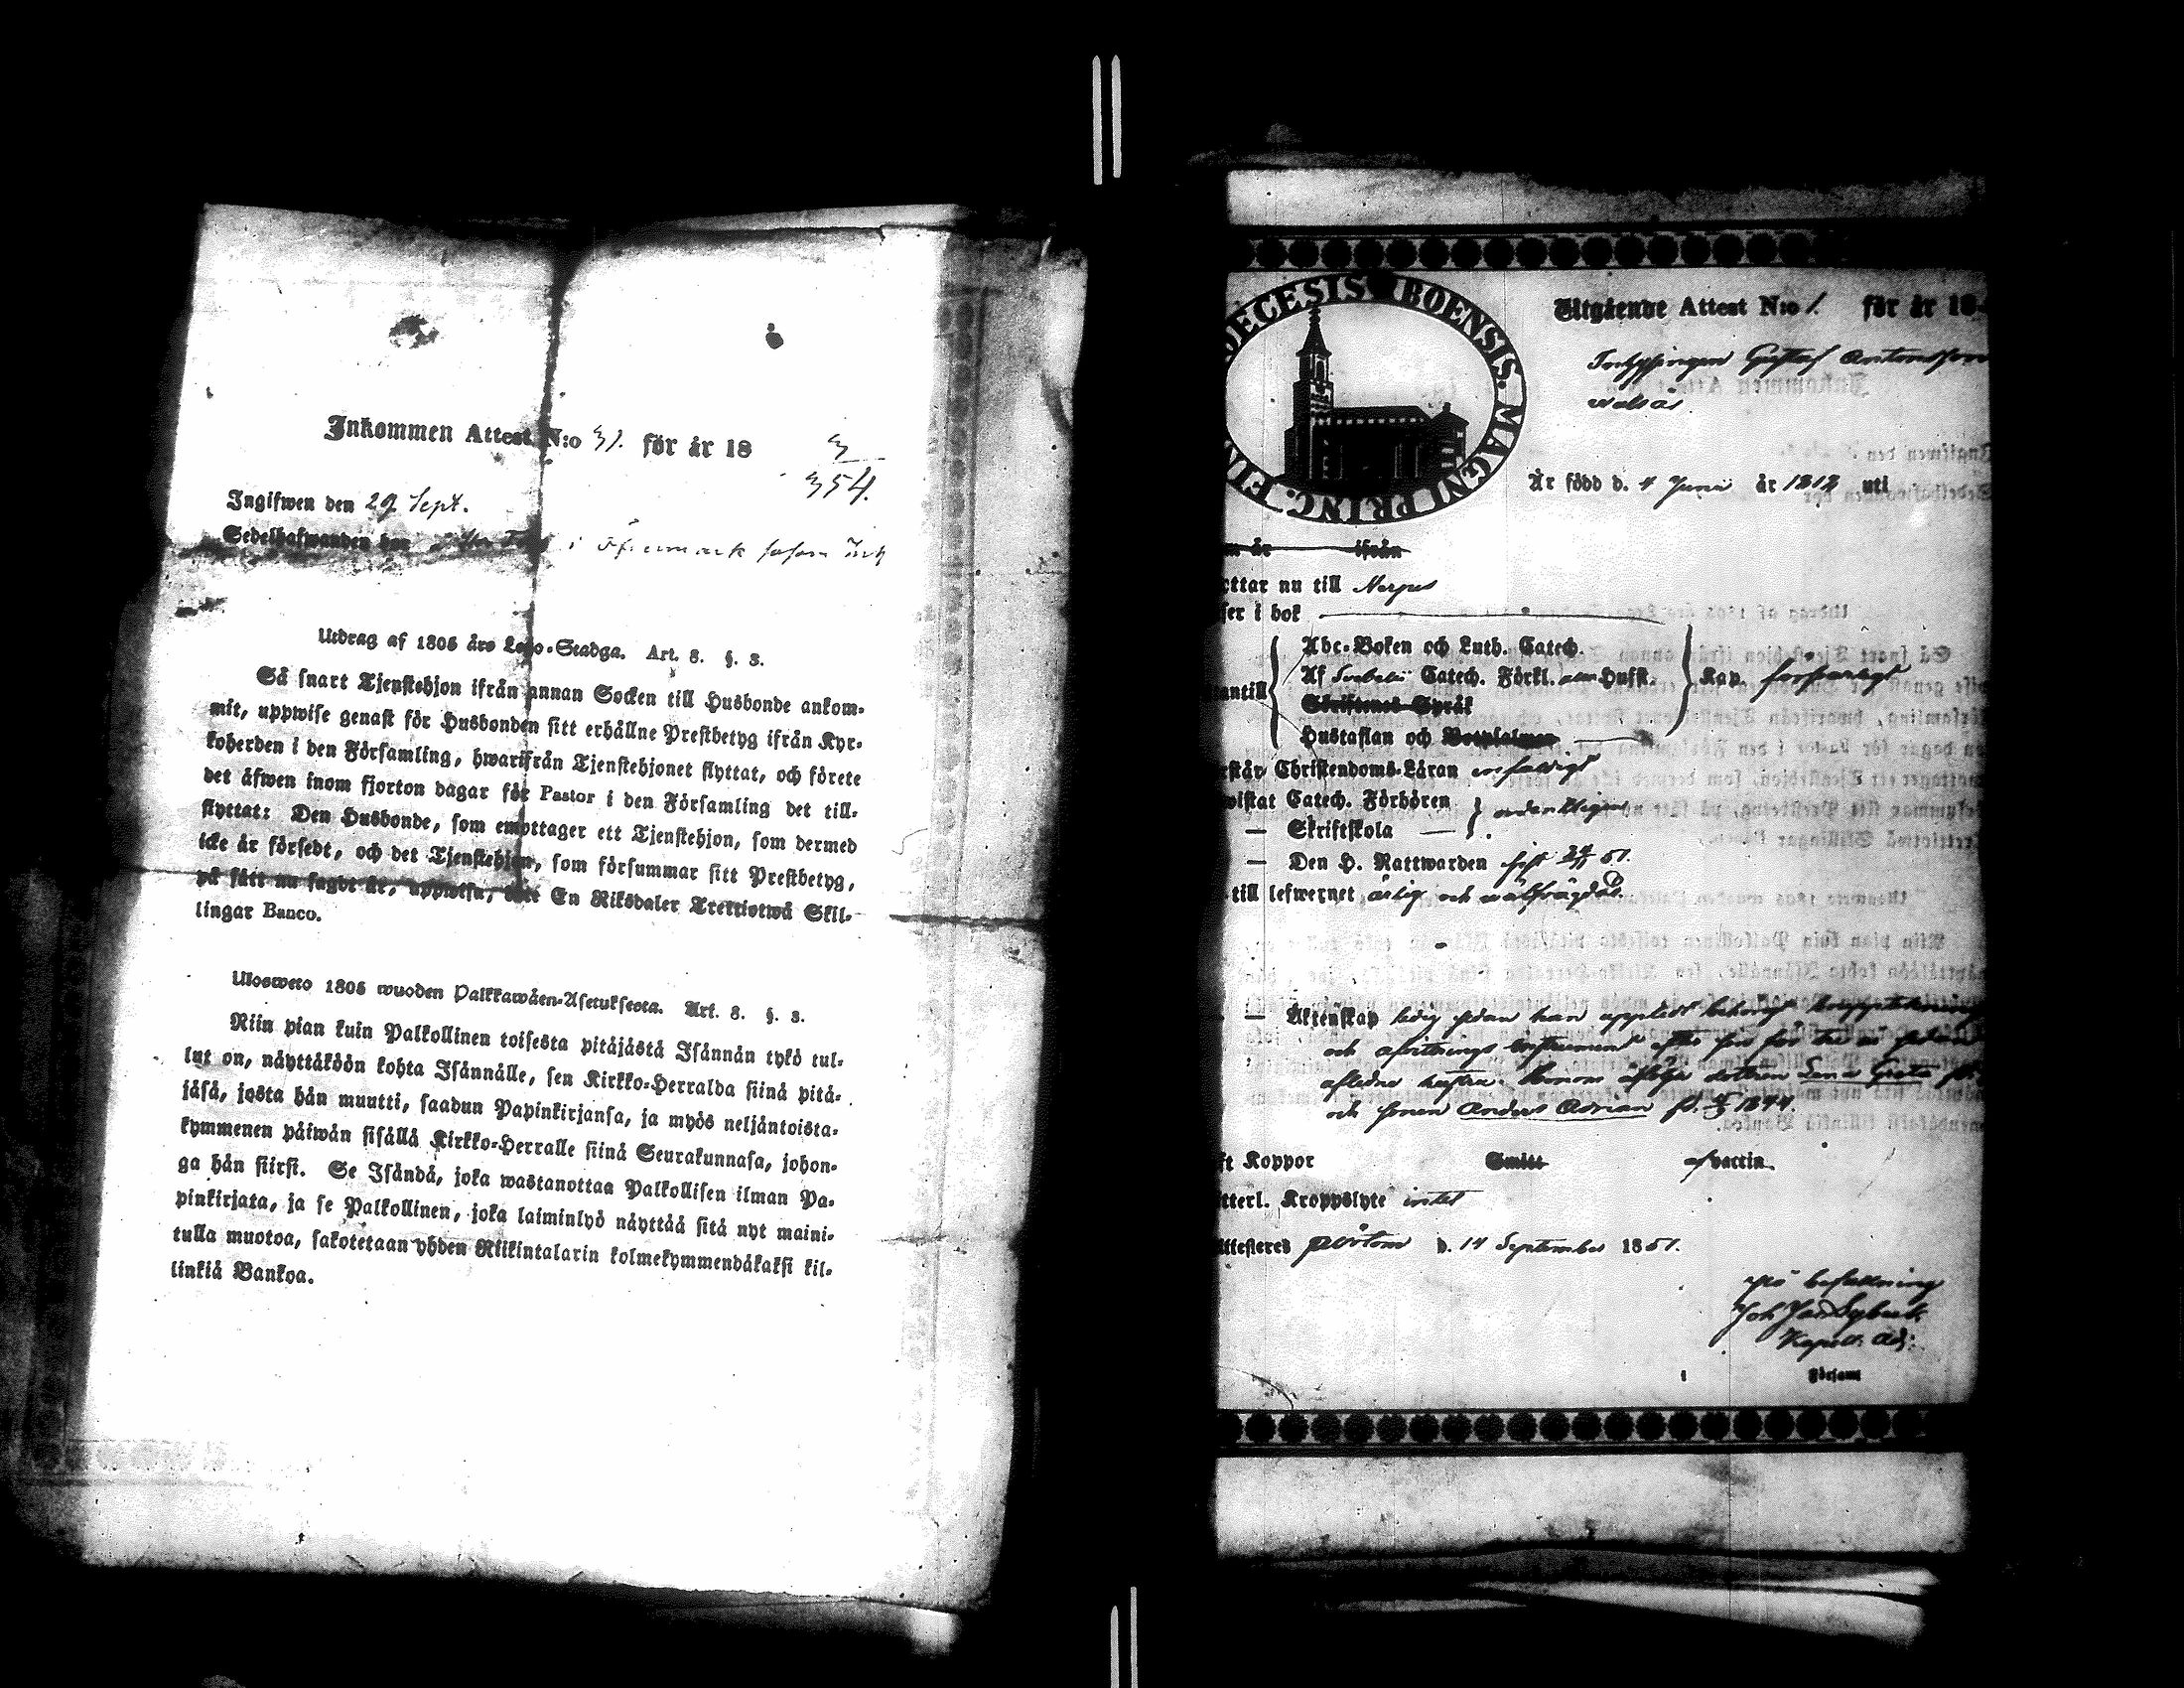 Inkommen Attest N:o 31. för år 18
3
354.
Ingifwen den 29 Sept.
Sedelhafwanden har i Öfvermark
Utdrag af 1805 års Lego-Stadga. Art. 8. §. 3.
Så snart Tjenstehjon ifrån annan Socken till Husbonde ankom-
mit, uppwise genast för Husbonden sitt erhållne Prestbetyg ifrån Kyr-
koherden i den Församling, hwarifrån Tjenstehjonet flyttat, och förete
det äfwen inom fjorton dagar för Pastor i den Församling det till-
flyttat: Den Husbonde, som emottager ett Tjenstehjon, som dermed
icke är försedt, och det Tjenstehjon, som försummar sitt Prestbetyg,
på sätt nu sagdt är, uppwisa, böte En Riksdaler Trettiotwå Skil-
lingar Banco.
Ulosweto 1805 wuoden Palkkawäen-Asetuksesta. Art. 8. §. 3.
Niin pian kuin Palkollinen toisesta pitäjästä Isännän tykö tul-
lut on, näyttäköön kohta Isännälle, sen Kirkko-Herralda siinä pitä-
jäsä, josta hän muutti, saadun Papinkirjansa, ja myös neljäntoista-
kymmenen päiwän sisällä Kirkko-Herralle siinä Seurakunnasa, johon-
ga hän siirsi. Se Isändä, joka wastanottaa Palkollisen ilman Pa-
pinkirjata, ja se Palkollinen, joka laiminlyö näyttää sitä nyt maini-
tulla muotoa, sakotetaan yhden Riikintalarin kolmekymmendäkaksi kil-
linkiä Bankoa.
DECESIS BOENSIS. MAGNI PRINC. FIN
Utgående Attest N:o 1. för år 18
Inhysingen Gustaf Antonsson
Är född d. 4 Juni år 1812 uti
m år ifrån
ttar nu till Nerpes
ser i bok
Abc-Boken och Luth. Catech.
antill Af Svebelii Catech. Förkl. Hufst. Kap. försvarligt
Skriftenes Språk
Hustaflan och Botpsalmer
rstår Christendoms-Läran
wistat Catech. Förhören ordentligen
— Skriftskola —
— Den H. Nattwarden sist 24/8 51.
till lefwernet ärlig och välfrägdad.
— Äktenskap ledig sedan han upplöst behörigt
och afvittrings Instrument efter sin för tre år sedan
aflidna hustru. Honom åtfölja dottren Lena Greta
och sonen Anders Adrian 1844.
ft Koppor Smitt af vaccin.
tterl. Kroppslyte intet
Attesteres Pörtom d. 14 September 1851.
På befallning
Kapell. Adj:
Församl